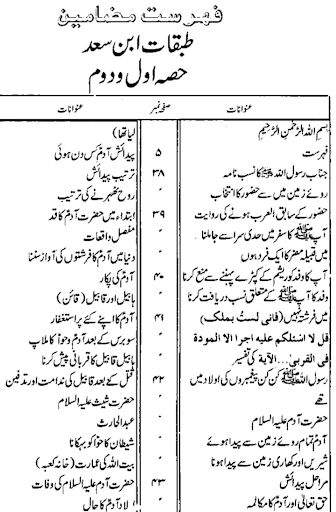 فہرست مضامین
طبقات ابن سعد
حصہ اول و دوم
عنوانات
صفحہ نمبر
عنوانات
بسم اللہ الرحمٰن الرحیم
فہرست
۵
جناب رسول اللہ ﷺ کا نسب نامہ
۳۸
روئے زمین میں سے حضور کا انتخاب
"
حضور کے سابق العرب ہونے کی روایت
۳۹
آپ ﷺ کا سفر میں حدی سرا سے جا ملنا
"
میں قبیلہ مضر کا ایک فرد ہوں
"
آپ کا وفد کو ریشم کے کپڑے پہننے سے منع کرنا
۴۰
وفد کا آپ ﷺ کے متعلق نسب دریافت کرنا
"
میں فرشتہ نہیں (فانی لست بملک)
۴۱
قل لا اسئلکم علیہ اجرا الا المودۃ
"
فی القربیٰ... الآیۃ کی تفسیر
"
رسول اللہ ﷺ کن کن پیغمبروں کی اولاد میں
۴۲
تھے
"
حضرت آدم علیہ السلام
"
آدم تمام روئے زمین سے پیدا ہوئے
"
شیریں اور کھاری زمین سے پیدا ہونا
"
مراحل پیدائش
۴۳
حق تعالیٰ اور آدم کا مکالمہ
"
لیا تھا)
پیدائش آدم کس دن ہوئی
ترتیب پیدائش
روح ٹھہرنے کی ترتیب
ابتداء میں حضرت آدم کا قد
مفصل واقعات
دنیا میں آدم کا فرشتوں کی آواز سننا
آدم کی پکار
ہابیل اور قابیل (قائن)
آدم کا اپنے کئے پر استغفار
سو برس کے بعد آدم و حوا کا ملاپ
ہابیل قابیل کا قربانی پیش کرنا
قتل کے بعد قابیل کی ندامت اور تدفین
حضرت شیث علیہ السلام
عبدالحارث
شیطان کا حوا کو بہکانا
بیت اللہ کی عمارت (خانہ کعبہ)
حضرت آدم علیہ السلام کی وفات
اولاد آدم کا حال